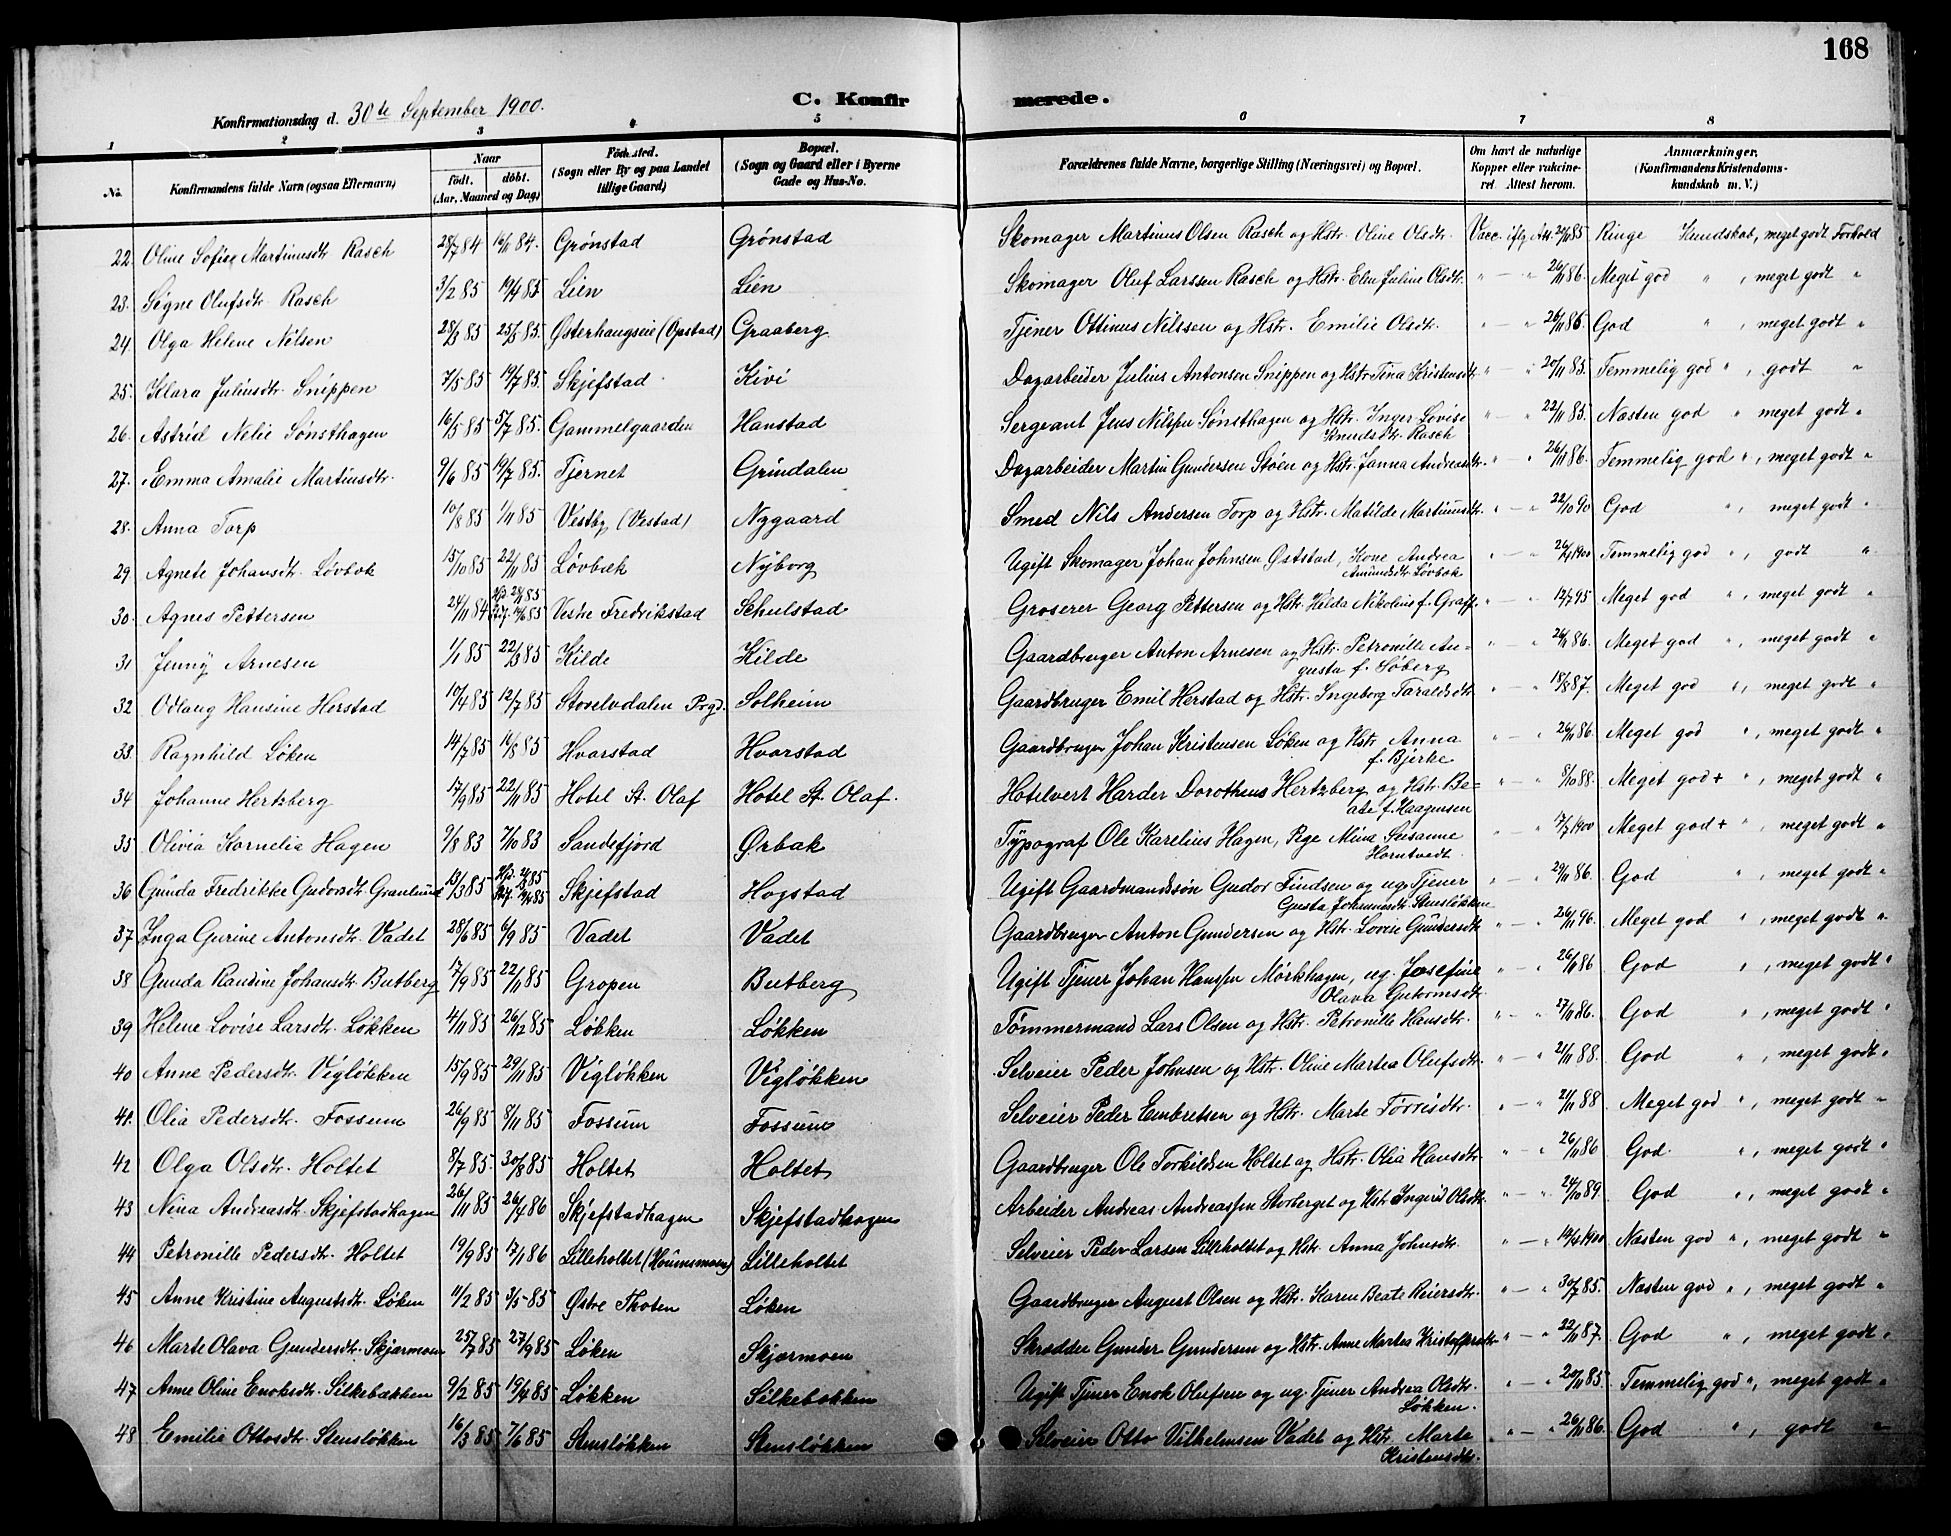 168
Konfirmationsdag d. 30te September 1900.
C. Konfirmerede.
1 2 3 4 5 6 7 8
No. Konfirmandens fulde Navn (ogsaa Efternavn) Naar født. døbt. (Aar, Maaned og Dag) Fødested. (Sogn eller By og paa Landet tillige Gaard) Bopæl. (Sogn og Gaard eller i Byerne Gade og Hus-No. Forældrenes fulde Navne, borgerlige Stilling (Næringsvei) og Bopæl. Om havt de naturlige Kopper eller vakcineret. Attest herom. Anmærkninger. (Konfirmandens Kristendomskundskab m. V.)
22. Oline Sofie Martinusdtr. Rasch 28/7 84 16/11 84. Grønstad Grønstad Skomager Martinus Olsen Rasch og Hstr. Oline Olsdtr. Vacc. iflg. Att. 20/11 85 Ringe Kundskab, meget godt Forhold
23. Signe Olufsdtr. Rasch 3/2 85 19/4 85 Lien Lien Skomager Oluf Larssen Rasch og Hstr. Elen Juline Olsdtr. " — " 26/11 86. Meget god " , meget godt "
24. Olga Helene Nilsen 28/3 85 25/5 85. Østerhaugseie (Opstad) Graaberg Tjener Ottinus Nilssen og Hstr. Emilie Olsdtr. " — " 26/11 86. God " , meget godt "
25. Klara Juliusdtr. Snippen 7/5 85 19/7 85. Skjefstad Kivi Dagarbeider Julius Antonsen Snippen og Hstr. Tina Kristensdtr. " — " 20/11 85. Temmelig god " , godt "
26. Astrid Nelie Sønsthagen 16/5 85 5/7 85. Gammelgaarden Hanstad Sergeant Jens Nilsen Sønsthagen og Hstr. Inger Lovise Knudsdtr. Rasch " — " 22/11 85. Næsten god " , meget godt "
27. Emma Amalie Martinsdtr. 9/6 85 19/7 85. Tjernet Grindalen Dagarbeider Martin Gundersen Støen og Hstr. Janna Andreasdtr. " — " 26/11 86. Temmelig god " , meget godt "
28. Anna Torp 10/8 85 1/11 85 Vestby (Vestad) Nygaard Smed Nils Andersen Torp og Hstr. Matilde Martinusdtr. " — " 22/10 90 God " , meget godt "
29. Agnete Johansdtr. Løvbæk 15/10 85 22/11 85 Løvbæk Nyborg Ugift Skomager Johan Johnsen Øststad, Kone Andrea Amundsdtr. Løvbæk " — " 1900 Temmelig god " , godt "
30. Agnes Pettersen 24/11 84 Vestre Fredrikstad Schulstad Groserer Georg Pettersen og Hstr. Hilda Nikoline f. Graff. " — " 12/7 95 Meget god " , meget godt "
31 Jenny Arnesen 1/1 85 22/3 85 Kilde Kilde Gaardbruger Anton Arnesen og Hstr. Petronille Augusta f. Søberg " — " 26/11 86. Meget god " , meget godt "
32 Odlaug Hansine Herstad 10/4 85 12/7 85 Storelvdalen Prgd. Solheim Gaardbruger Emil Herstad og Hstr. Ingeborg Taraldsdtr. " — " 18/8 87. Meget god " , meget godt "
33 Ragnhild Løken 14/7 85 16/8 85 Hvarstad Hvarstad Gaardbruger Johan Kristensen Løken og Hstr. Anna f. Bjerke " — " 26/11 86. Meget god " , meget godt "
34 Johanne Hertzberg 17/9 85 22/11 85 Hotel St. Olaf Hotel St. Olaf. Hotelvert Harder Dorotheus Hertzberg og Hstr. Beate f. Haagensen " — " 8/10 88. Meget god + " , meget godt "
35 Olivia Kornelia Hagen 9/8 83 7/10 83 Sandefjord Ørbæk Typograf Ole Karelius Hagen, Pge Mina Susanne Horntvedt " — " 1900 Meget god + " , meget godt "
36 Gunda Fredrikke Gudorsdtr. Granlund 13/3 85 Skjefstad Hogstad Ugift Gaardmandssøn Gudor Findsen og ug. Tjener Gusta Johannesdtr. Stensløkken " — " 29/11 86. God " , meget godt "
37 Inga Gurine Antonsdtr. Vadet 28/6 85 6/9 85 Vadet Vadet Gaardbruger Anton Gundersen og Hstr. Lovise Gundersdtr. " — " 26/11 96. Meget god " , meget godt "
38 Gunda Randine Johansdtr. Butberg 17/9 85 22/11 85 Gropen Butberg Ugift Tjener Johan Hanssen Mørkhagen, ug. Josefine Olava Gutormsdtr. " — " 26/11 86 God " , meget godt "
39 Helene Lovise Larsdtr. Løkken 4/11 85 26/12 85 Løkken Løkken Tømmermand Lars Olsen og Hstr. Petronille Hansdtr. " — " 27/11 86. God " , meget godt "
40 Anne Pedersdtr. Vigløkken 15/9 85 29/11 85 Vigløkken Vigløkken Selveier Peder Johnsen og Hstr. Oline Martea Olufsdtr. " — " 21/11 88. God " , meget godt "
41. Olia Pedersdtr. Fossum 26/9 85 8/11 85 Fossum Fossum Selveier Peder Embretsen og Hstr. Marte Tørrisdtr. " — " 21/11 88 Meget god " , meget godt "
42 Olga Olsdtr. Holtet 8/7 85. 30/8 85 Holtet Holtet Gaardbruger Ole Torkildsen Holtet og Hstr. Olia Hansdtr. " — " 26/11 86 God. " , meget godt "
43 Nina Andreasdtr. Skjefstadhagen 26/11 85 26/4 86 Skjefstadhagen Skjefstadhagen Arbeider Andreas Andreassen Storberget og Hstr. Ingrid Olsdtr. " — " 24/10 89. God " , meget godt "
44 Petronille Pedersdtr. Holtet 19/9 85 17/1 86 Lilleholtet Lilleholtet Selveier Peder Larsen Lilleholtet og Hstr. Anna Johnsdtr. " — " 19/4 1900 Næsten god " , meget godt "
45 Anne Kristine Augustsdtr. Løken 11/2 85 3/5 85 Østre Thoten Løken Gaardbruger August Olsen og Hstr. Karen Beate Reiersdtr. " — " 30/7 85. Næsten god " , meget godt "
46 Marte Olava Gundersdtr. Skjærmoen 25/7 85 27/9 85 Løken Skjærmoen Skrædder Gunder Gundersen og Hstr. Anne Martea Kristoffersdtr. " — " 22/11 87. God " , meget godt "
47 Anne Oline Enoksdtr. Silkebækken 9/2 85 19/4 85 Løkken Silkebækken Ugift Tjener Enok Olufsen og ug. Tjener Andrea Olsdtr. Løkken. " — " 20/11 85. Temmelig god " , meget godt "
48 Emilie Ottosdtr. Stensløkken 16/3 85 7/6 85 Stensløkken Stensløkken Selveier Otto Vilhelmsen Vadet og Hstr. Marte Kristensdtr. " — " 26/11 86. God " , godt "